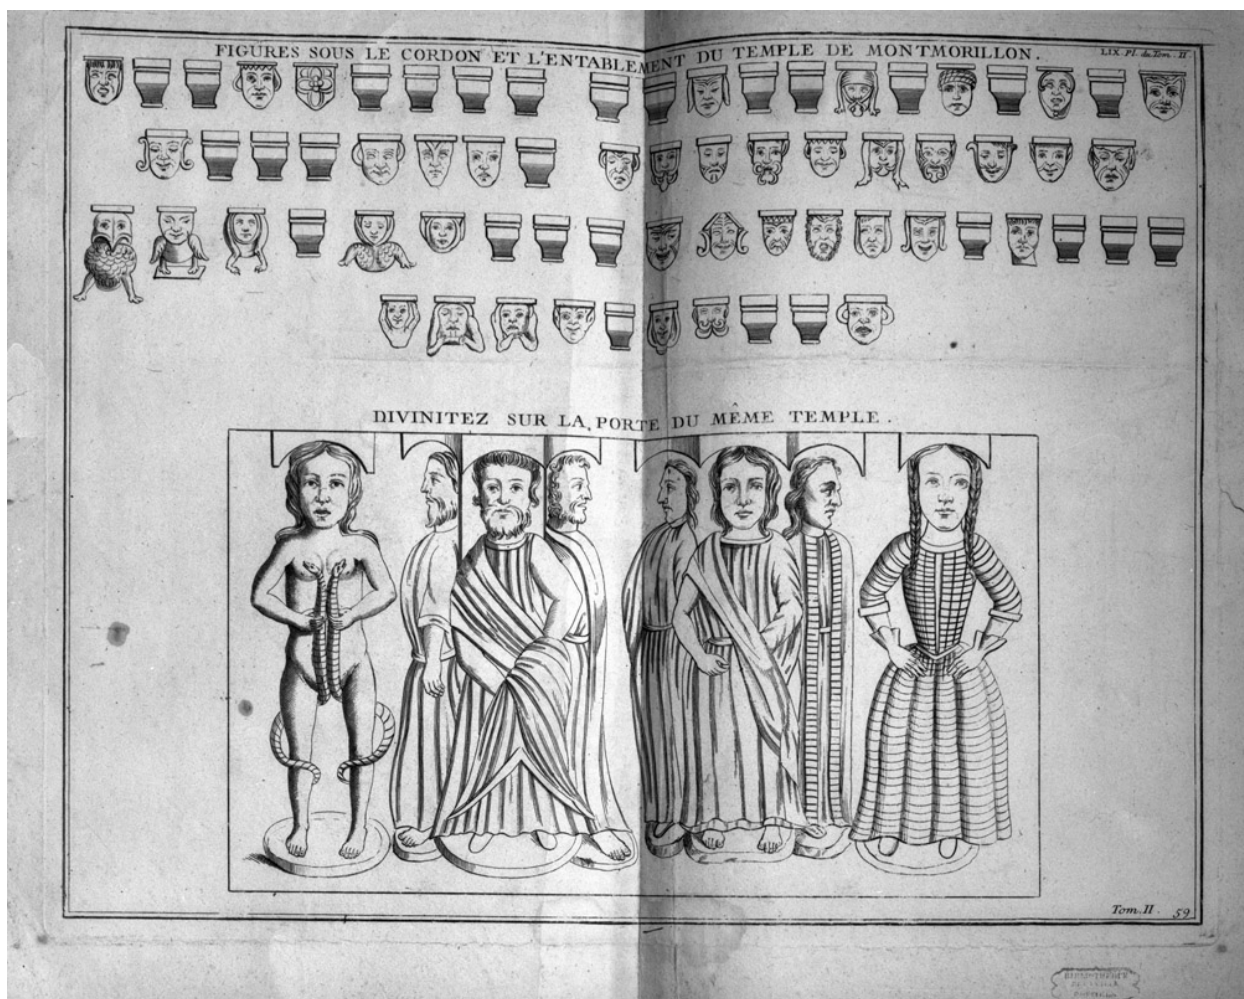 FIGURES SOUS LE CORDON ET L'ENTABLEMENT DU TEMPLE DE MONTMORILLON.
LIX. Pl. du Tom. II
DIVINITEZ SUR LA PORTE DU MÊME TEMPLE.
Tom. II. 59
BIBLIOTHEQUE